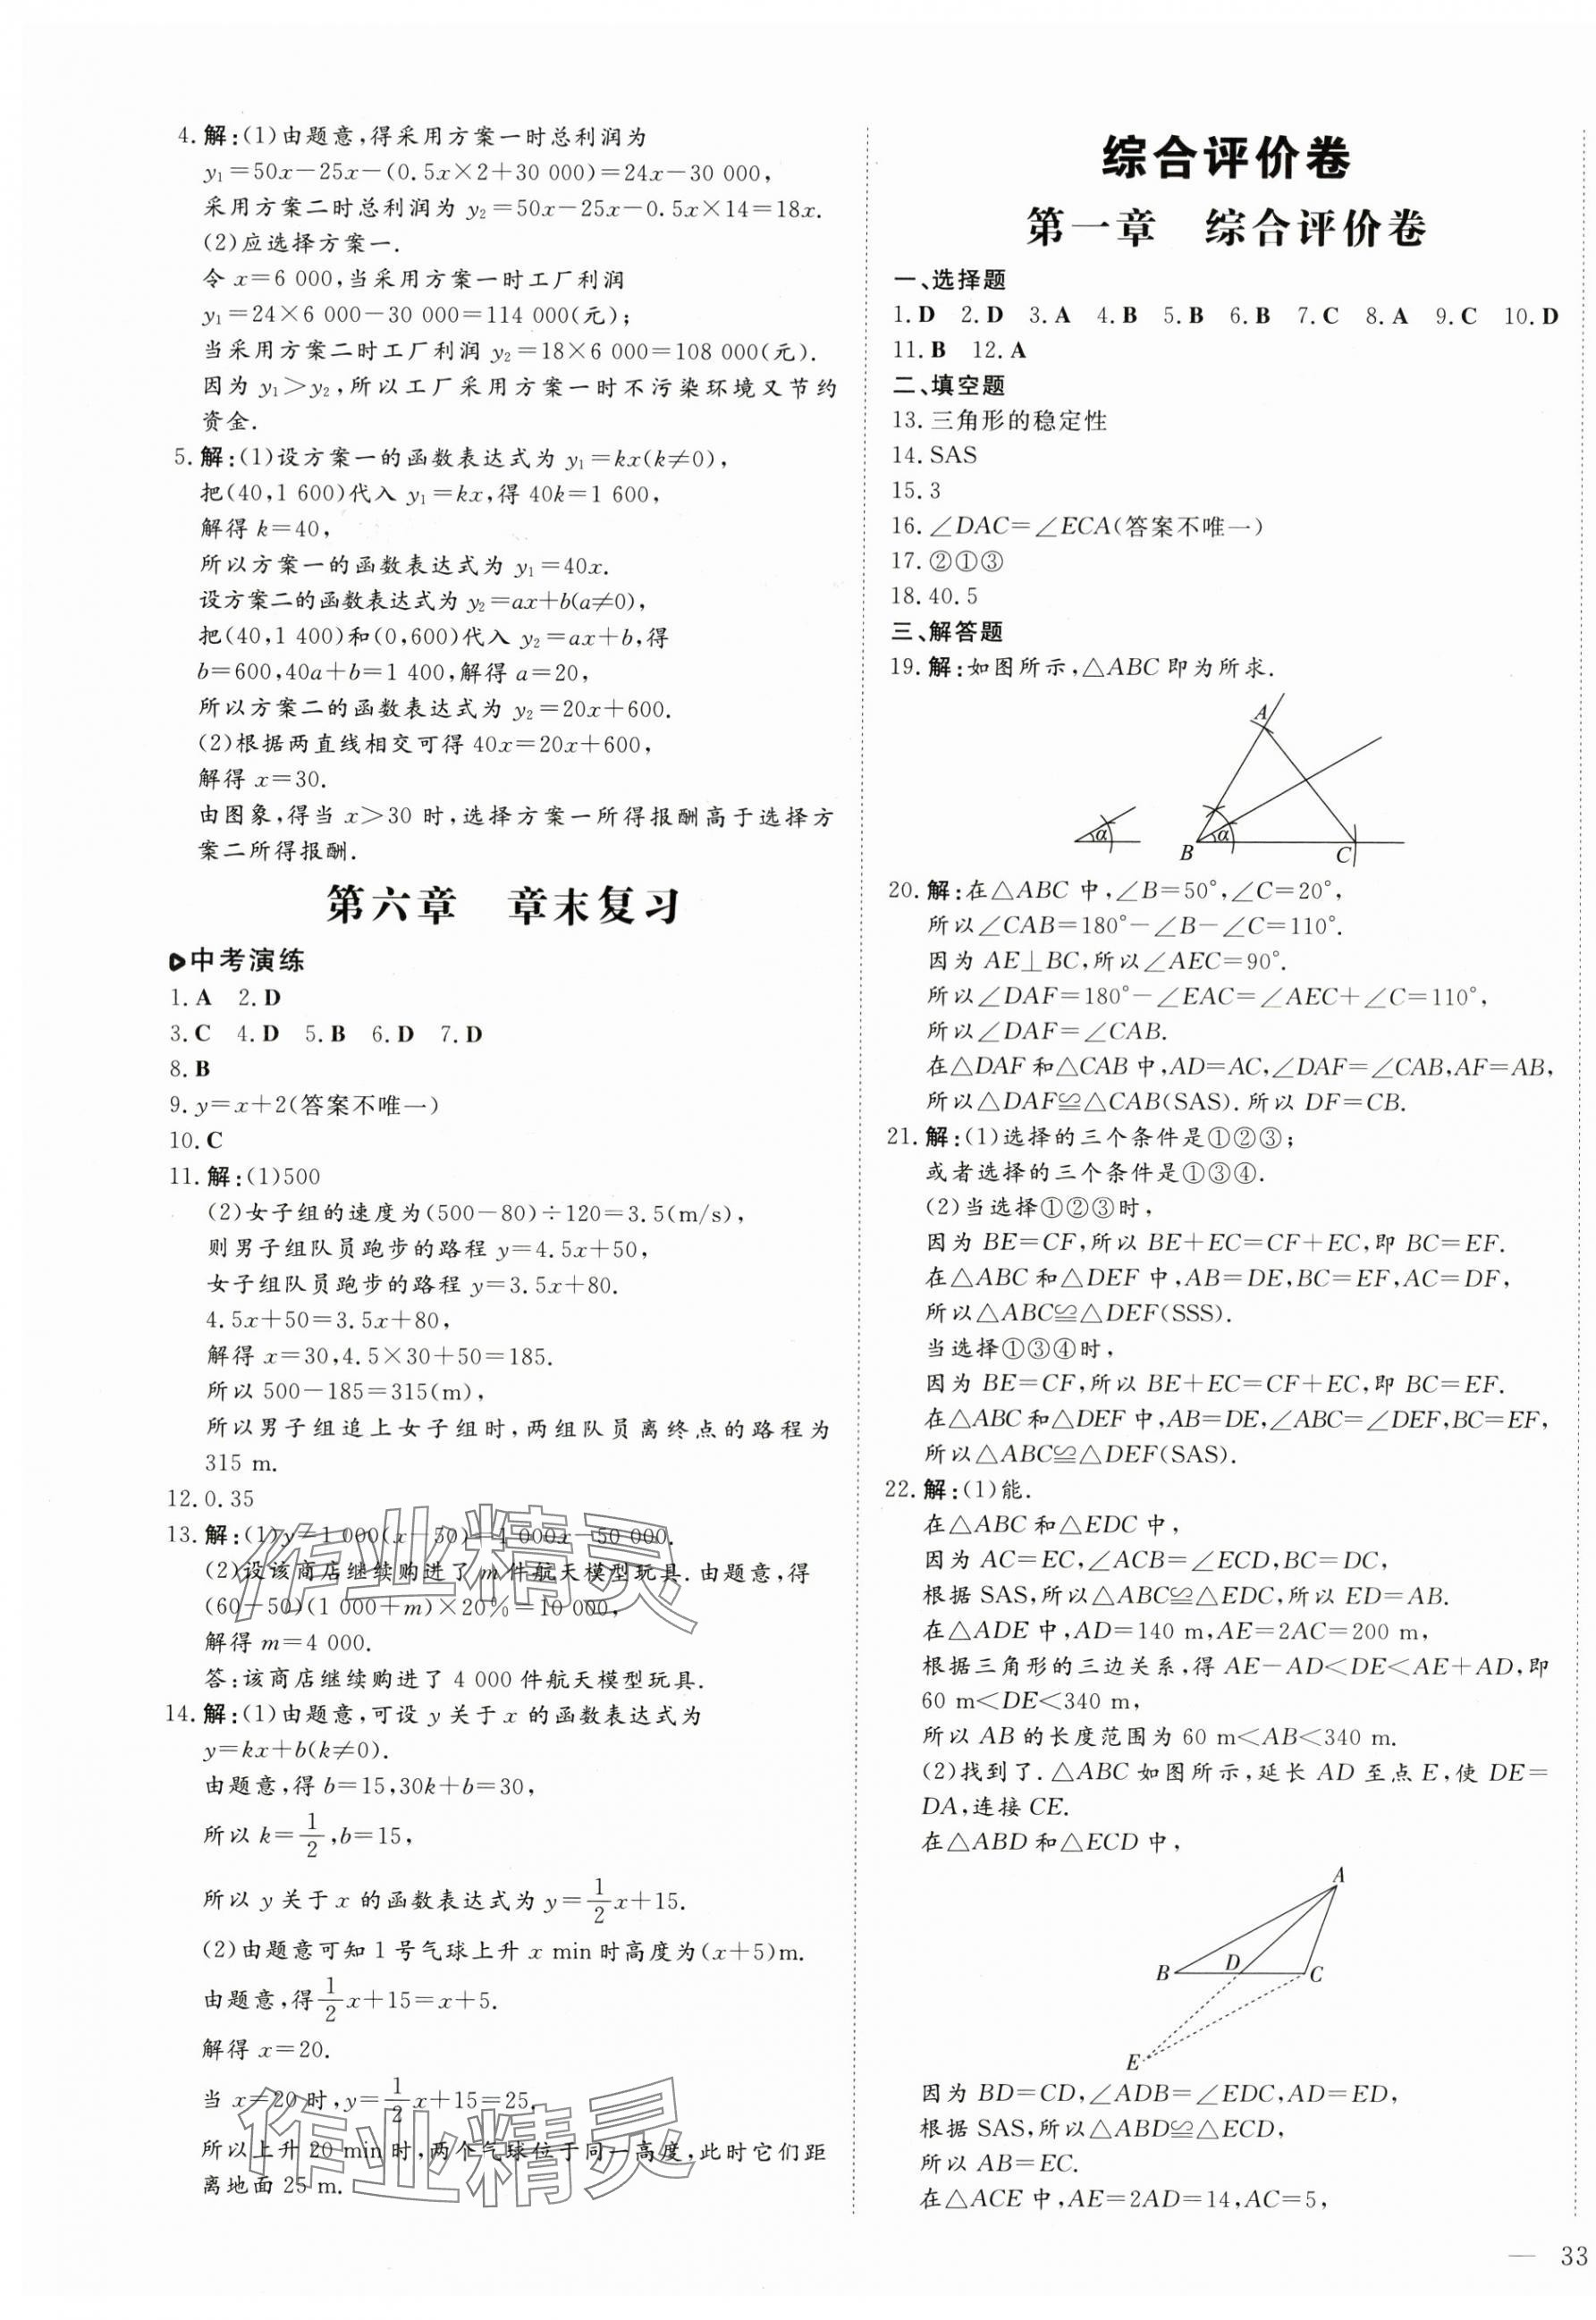 4.解:(1)由题意,得采用方案一时总利润为
y₁=50x-25x-(0.5x×2+30 000)=24x-30 000,
采用方案二时总利润为 y₂=50x-25x-0.5x×14=18x.
(2)应选择方案一.
令 x=6 000,当采用方案一时工厂利润
y₁=24×6 000-30 000=114 000(元);
当采用方案二时工厂利润 y₂=18×6 000=108 000(元).
因为 y₁>y₂,所以工厂采用方案一时不污染环境又节约
资金.
5.解:(1)设方案一的函数表达式为 y₁=kx(k≠0),
把(40,1 600)代入 y₁=kx,得 40k=1 600,
解得 k=40,
所以方案一的函数表达式为 y₁=40x.
设方案二的函数表达式为 y₂=ax+b(a≠0),
把(40,1 400)和(0,600)代入 y₂=ax+b,得
b=600,40a+b=1 400,解得 a=20,
所以方案二的函数表达式为 y₂=20x+600.
(2)根据两直线相交可得 40x=20x+600,
解得 x=30.
由图象,得当 x>30 时,选择方案一所得报酬高于选择方
案二所得报酬.
第六章 章末复习
中考演练
1.A 2.D
3.C 4.D 5.B 6.D 7.D
8.B
9.y=x+2(答案不唯一)
10.C
11.解:(1)500
(2)女子组的速度为(500-80)÷120=3.5(m/s),
则男子组队员跑步的路程 y=4.5x+50,
女子组队员跑步的路程 y=3.5x+80.
4.5x+50=3.5x+80,
解得 x=30,4.5×30+50=185.
所以 500-185=315(m),
所以男子组追上女子组时,两组队员离终点的路程为
315 m.
12.0.35
13.解:(1)y=1 000(x-50)=1 000x-50 000.
(2)设该商店继续购进了 m 件航天模型玩具.由题意,得
(60-50)(1 000+m)×20%=10 000,
解得 m=4 000.
答:该商店继续购进了 4 000 件航天模型玩具.
14.解:(1)由题意,可设 y 关于 x 的函数表达式为
y=kx+b(k≠0).
由题意,得 b=15,30k+b=30,
所以 k=1/2,b=15,
所以 y 关于 x 的函数表达式为 y=1/2x+15.
(2)由题意可知 1 号气球上升 x min 时高度为(x+5)m.
由题意,得1/2x+15=x+5.
解得 x=20.
当 x=20 时,y=1/2x+15=25,
所以上升 20 min 时,两个气球位于同一高度,此时它们距
离地面 25 m.
作业精灵
作业精灵
综合评价卷
第一章 综合评价卷
一、选择题
1.D 2.D 3.A 4.B 5.B 6.B 7.C 8.A 9.C 10.D
11.B 12.A
二、填空题
13.三角形的稳定性
14.SAS
15.3
16.∠DAC=∠ECA(答案不唯一)
17.②①③
18.40.5
三、解答题
19.解:如图所示,△ABC 即为所求.
A
α
α
B
C
20.解:在△ABC 中,∠B=50°,∠C=20°,
所以∠CAB=180°-∠B-∠C=110°.
因为 AE⊥BC,所以∠AEC=90°.
所以∠DAF=180°-∠EAC=∠AEC+∠C=110°,
所以∠DAF=∠CAB.
在△DAF 和△CAB 中,AD=AC,∠DAF=∠CAB,AF=AB,
所以△DAF≌△CAB(SAS).所以 DF=CB.
21.解:(1)选择的三个条件是①②③;
或者选择的三个条件是①③④.
(2)当选择①②③时,
因为 BE=CF,所以 BE+EC=CF+EC,即 BC=EF.
在△ABC 和△DEF 中,AB=DE,BC=EF,AC=DF,
所以△ABC≌△DEF(SSS).
当选择①③④时,
因为 BE=CF,所以 BE+EC=CF+EC,即 BC=EF.
在△ABC 和△DEF 中,AB=DE,∠ABC=∠DEF,BC=EF,
所以△ABC≌△DEF(SAS).
22.解:(1)能.
在△ABC 和△EDC 中,
因为 AC=EC,∠ACB=∠ECD,BC=DC,
根据 SAS,所以△ABC≌△EDC,所以 ED=AB.
在△ADE 中,AD=140 m,AE=2AC=200 m,
根据三角形的三边关系,得 AE-AD<DE<AE+AD,即
60 m<DE<340 m,
所以 AB 的长度范围为 60 m<AB<340 m.
(2)找到了.△ABC 如图所示,延长 AD 至点 E,使 DE=
DA,连接 CE.
在△ABD 和△ECD 中,
A
B
D
C
E
因为 BD=CD,∠ADB=∠EDC,AD=ED,
根据 SAS,所以△ABD≌△ECD,
所以 AB=EC.
在△ACE 中,AE=2AD=14,AC=5,
— 33